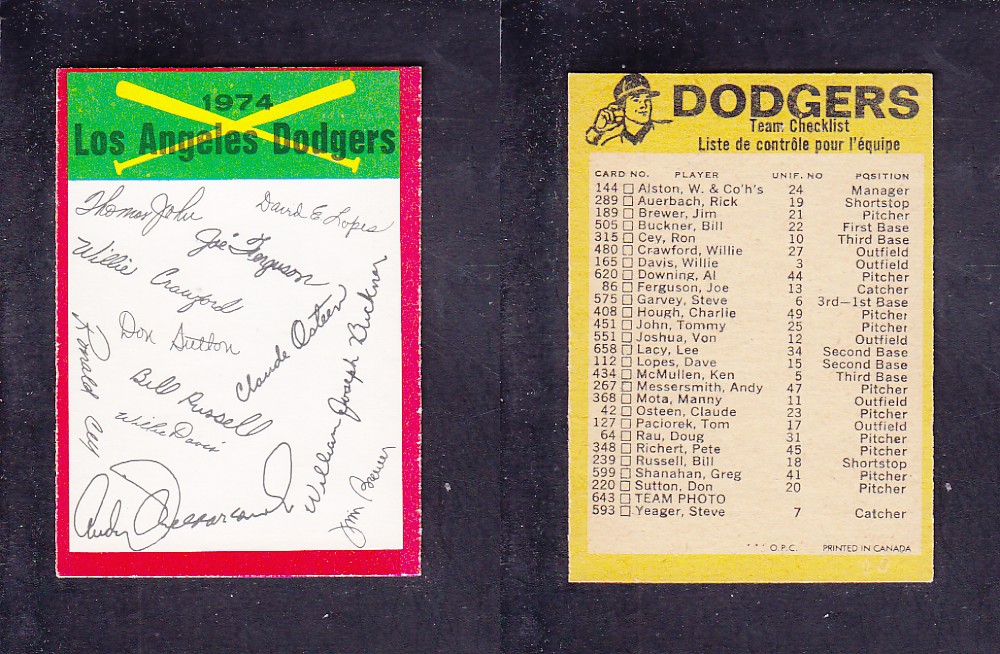 1974
Los Angeles Dodgers
Thomas John
David E Lopes
Joe Ferguson
Willie Crawford
Don Sutton
Claude Osteen
William Joseph Buckner
Ronald Cey
Bill Russell
Willie Davis
Andy Messersmith
Jim Brewer
DODGERS
Team Checklist
Liste de contrôle pour l'équipe
CARD NO. PLAYER UNIF. NO POSITION
144 Alston, W. & Co'h's 24 Manager
289 Auerbach, Rick 19 Shortstop
189 Brewer, Jim 21 Pitcher
505 Buckner, Bill 22 First Base
315 Cey, Ron 10 Third Base
480 Crawford, Willie 27 Outfield
165 Davis, Willie 3 Outfield
620 Downing, Al 44 Pitcher
86 Ferguson, Joe 13 Catcher
575 Garvey, Steve 6 3rd—1st Base
408 Hough, Charlie 49 Pitcher
451 John, Tommy 25 Pitcher
551 Joshua, Von 12 Outfield
658 Lacy, Lee 34 Second Base
112 Lopes, Dave 15 Second Base
434 McMullen, Ken 5 Third Base
267 Messersmith, Andy 47 Pitcher
368 Mota, Manny 11 Outfield
42 Osteen, Claude 23 Pitcher
127 Paciorek, Tom 17 Outfield
64 Rau, Doug 31 Pitcher
348 Richert, Pete 45 Pitcher
239 Russell, Bill 18 Shortstop
599 Shanahan, Greg 41 Pitcher
220 Sutton, Don 20 Pitcher
643 TEAM PHOTO
593 Yeager, Steve 7 Catcher
*** O.P.C. PRINTED IN CANADA